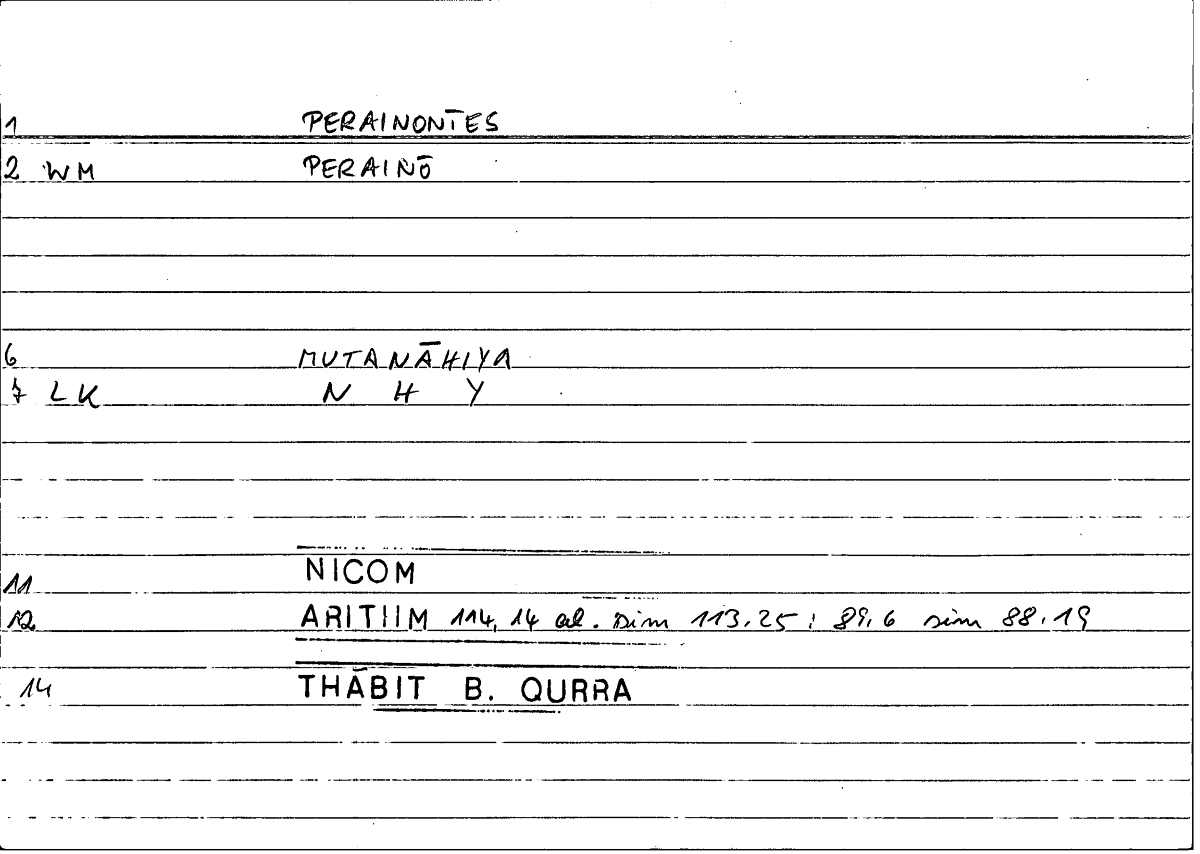 1 PERAINONTES
2 WM PERAINŌ
6 MUTANĀHIYA
7 LK N H Y
11 NICOM
12 ARITIIM 114, 14 al. sim 113.25; 89,6 sim 88.19
14 THĀBIT B. QURRA